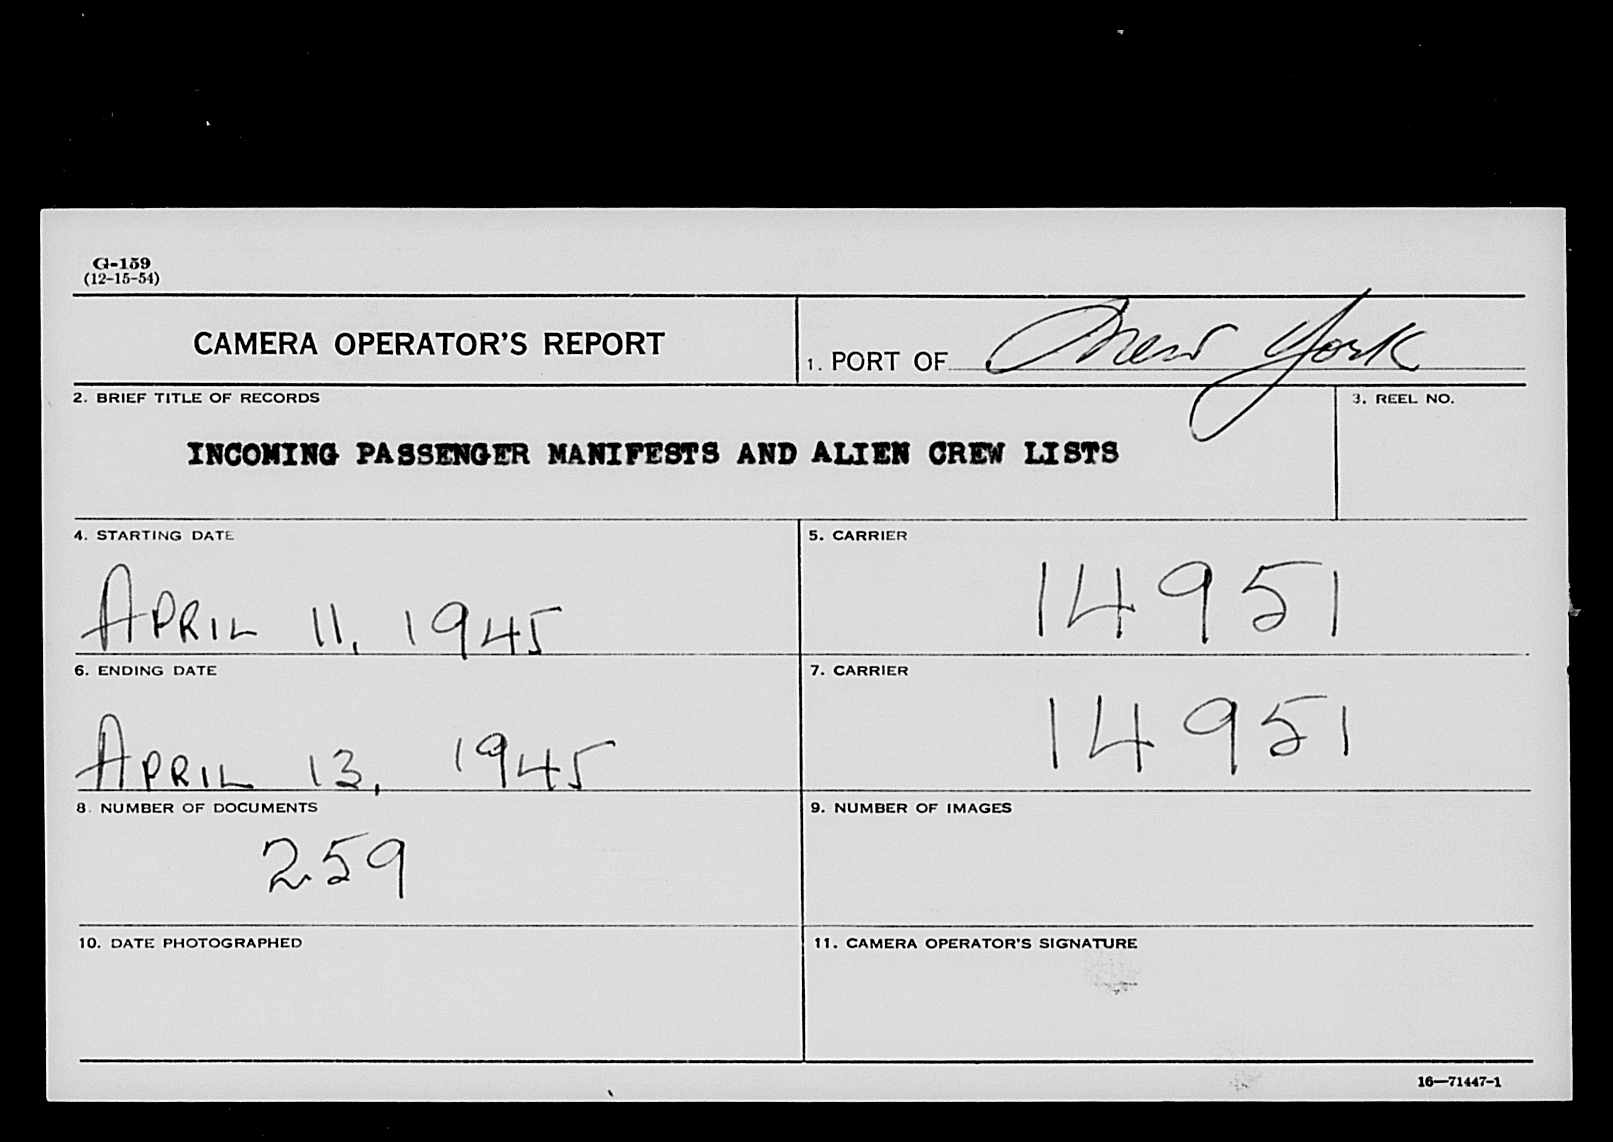 G-159
(12-15-54)
CAMERA OPERATOR'S REPORT
1. PORT OF New York
2. BRIEF TITLE OF RECORDS
3. REEL NO.
INCOMING PASSENGER MANIFESTS AND ALIEN CREW LISTS
4. STARTING DATE
5. CARRIER
APRIL 11, 1945
14951
6. ENDING DATE
7. CARRIER
APRIL 13, 1945
14951
8. NUMBER OF DOCUMENTS
9. NUMBER OF IMAGES
259
10. DATE PHOTOGRAPHED
11. CAMERA OPERATOR'S SIGNATURE
16—71447-1